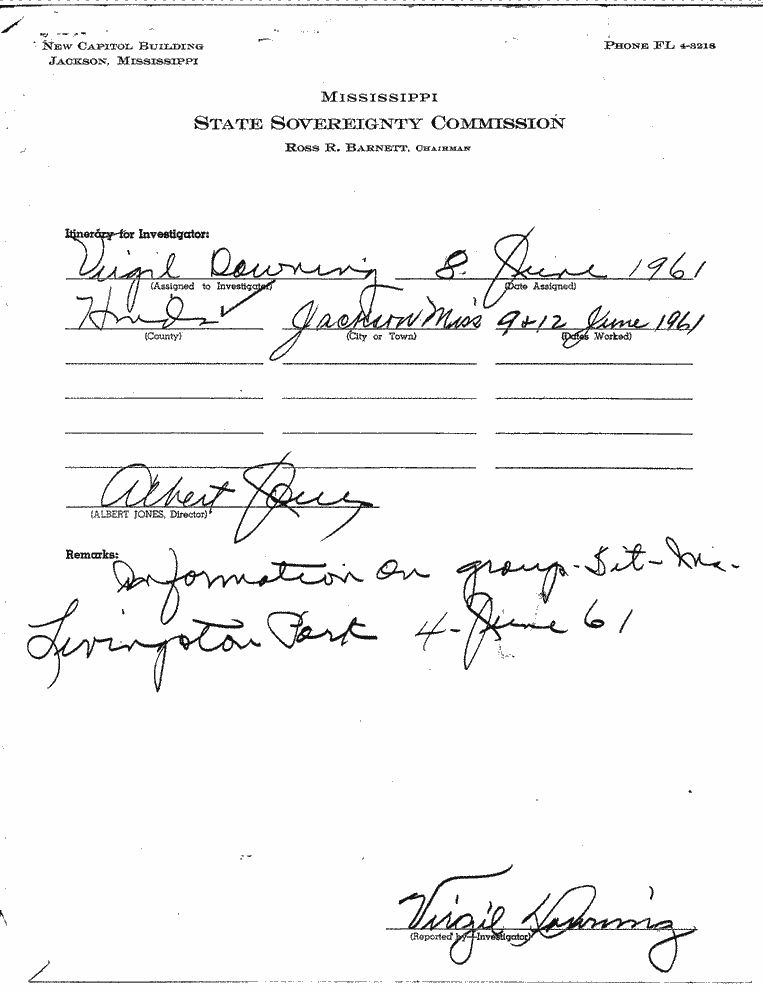 NEW CAPITOL BUILDING
JACKSON, MISSISSIPPI
PHONE FL 4-3218
MISSISSIPPI
STATE SOVEREIGNTY COMMISSION
ROSS R. BARNETT, CHAIRMAN
Itinerary for Investigator:
Virgil Downing 8 June 1961
(Assigned to Investigator) (Date Assigned)
Hinds Jackson Miss 9 & 12 June 1961
(County) (City or Town) (Dates Worked)
Albert Jones
(ALBERT JONES, Director)
Remarks:
Information on group-Sit-Ins-
Livingston Park 4-June 61
Virgil Downing
(Reported by Investigator)